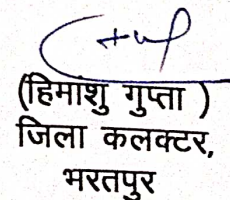 (हिमाशु गुप्ता )
जिला कलक्टर,
भरतपुर